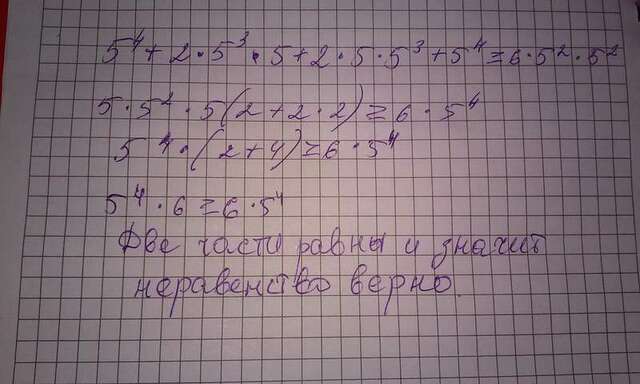 5⁴ + 2 · 5³ · 5 + 2 · 5 · 5³ + 5⁴ ≥ 6 · 5² · 5²
5 · 5² · 5(2 + 2 · 2) ≥ 6 · 5⁴
5⁴ · (2 + 4) ≥ 6 · 5⁴
5⁴ · 6 ≥ 6 · 5⁴
Две части равны и значит
неравенство верно.